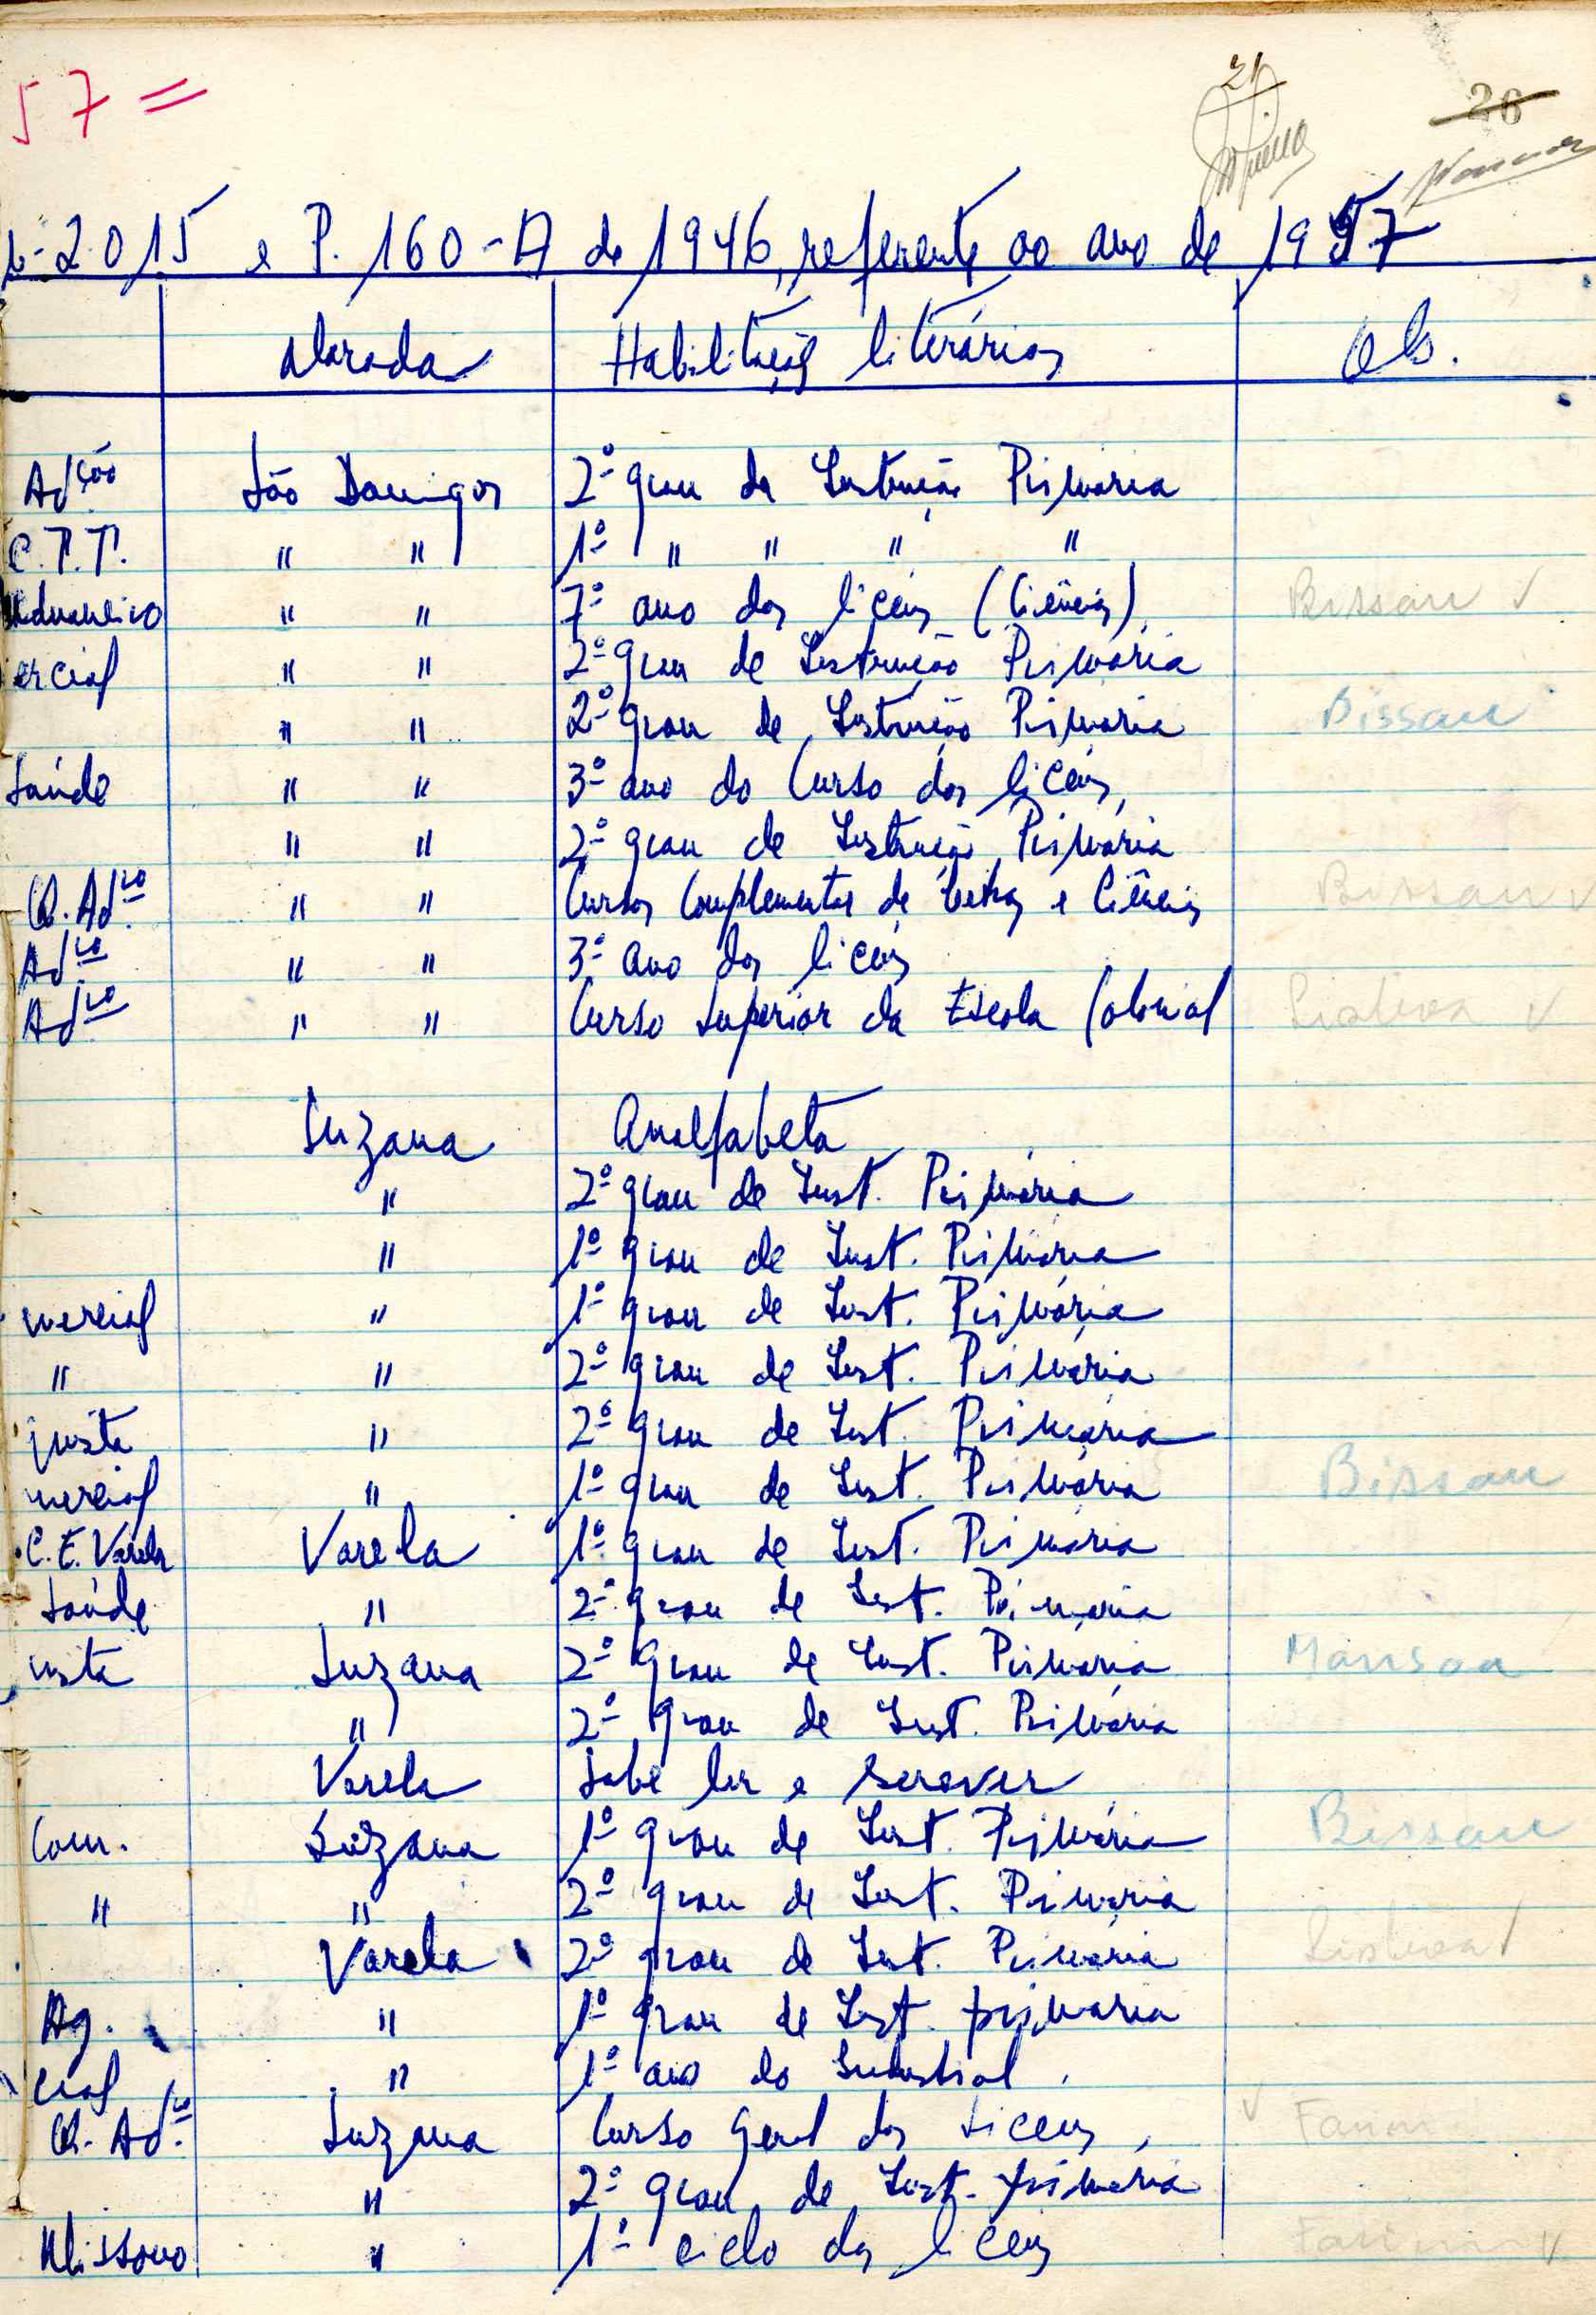 57 =
21
26
2015 e P. 160-A de 1946, referente ao ano de 1957
Morada Habilitações literárias Obs.
Adção São Domingos 2º grau da Instrução Primária
C.T.T. " " 1º " " " "
Aduaneiro " " 7º ano dos liceus (Ciências) Bissau ✓
ercial " " 2º grau de Instrução Primária
" " 2º grau de Instrução Primária Bissau
Saúde " " 3º ano do Curso dos liceus,
" " 2º grau de Instrução Primária
Q. Advo " " Cursos Complementar de Letras e Ciências Bissau ✓
Advo " " 3º ano dos liceus
Advo " " Curso Superior da Escola Colonial Lisboa ✓
Suzana Analfabeta
" 2º grau de Inst. Primária
" 1º grau de Inst. Primária
mercial " 1º grau de Inst. Primária
" " 2º grau de Inst. Primária
" 2º grau de Inst. Primária
mercial " 1º grau de Inst. Primária Bissau
C.E. Varela Varela 1º grau de Inst. Primária
Saúde " 2º grau de Inst. Primária
ista Suzana 2º grau de Inst. Primária Mansoa
" 2º grau de Inst. Primária
Varela Sabe ler e escrever
Com. Suzana 1º grau de Inst. Primária Bissau
" " 2º grau de Inst. Primária
Varela 2º grau de Inst. Primária Lisboa /
Ag. " 1º grau de Inst. primária
cial " 1º ano do Industrial.
Q. Advo Suzana Curso Geral dos Liceus, ✓ Farim
" 2º grau de Inst. primária
Missono " 1º ciclo dos liceus Farim ✓